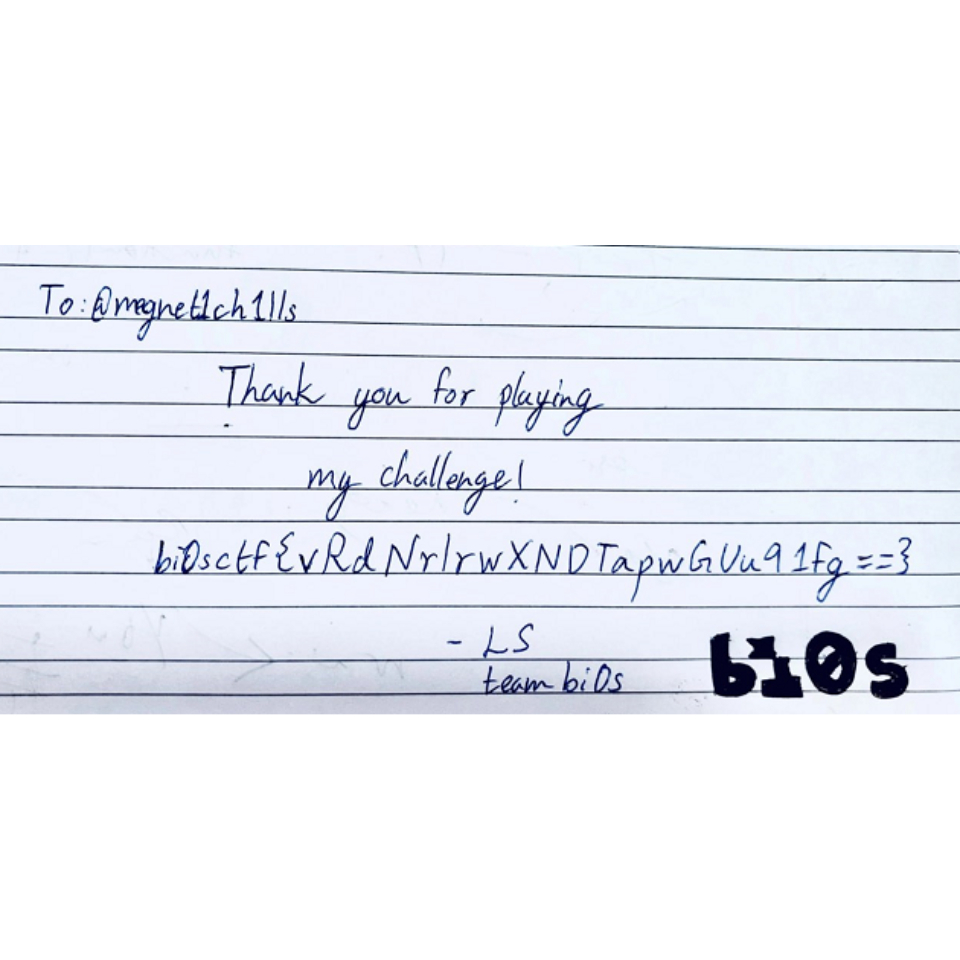 To: @magnet1ch1lls
Thank you for playing
my challenge!
bi0sctf{vRdNrlrwXNDTapwGUu91fg==}
- LS
team bi0s
bi0s